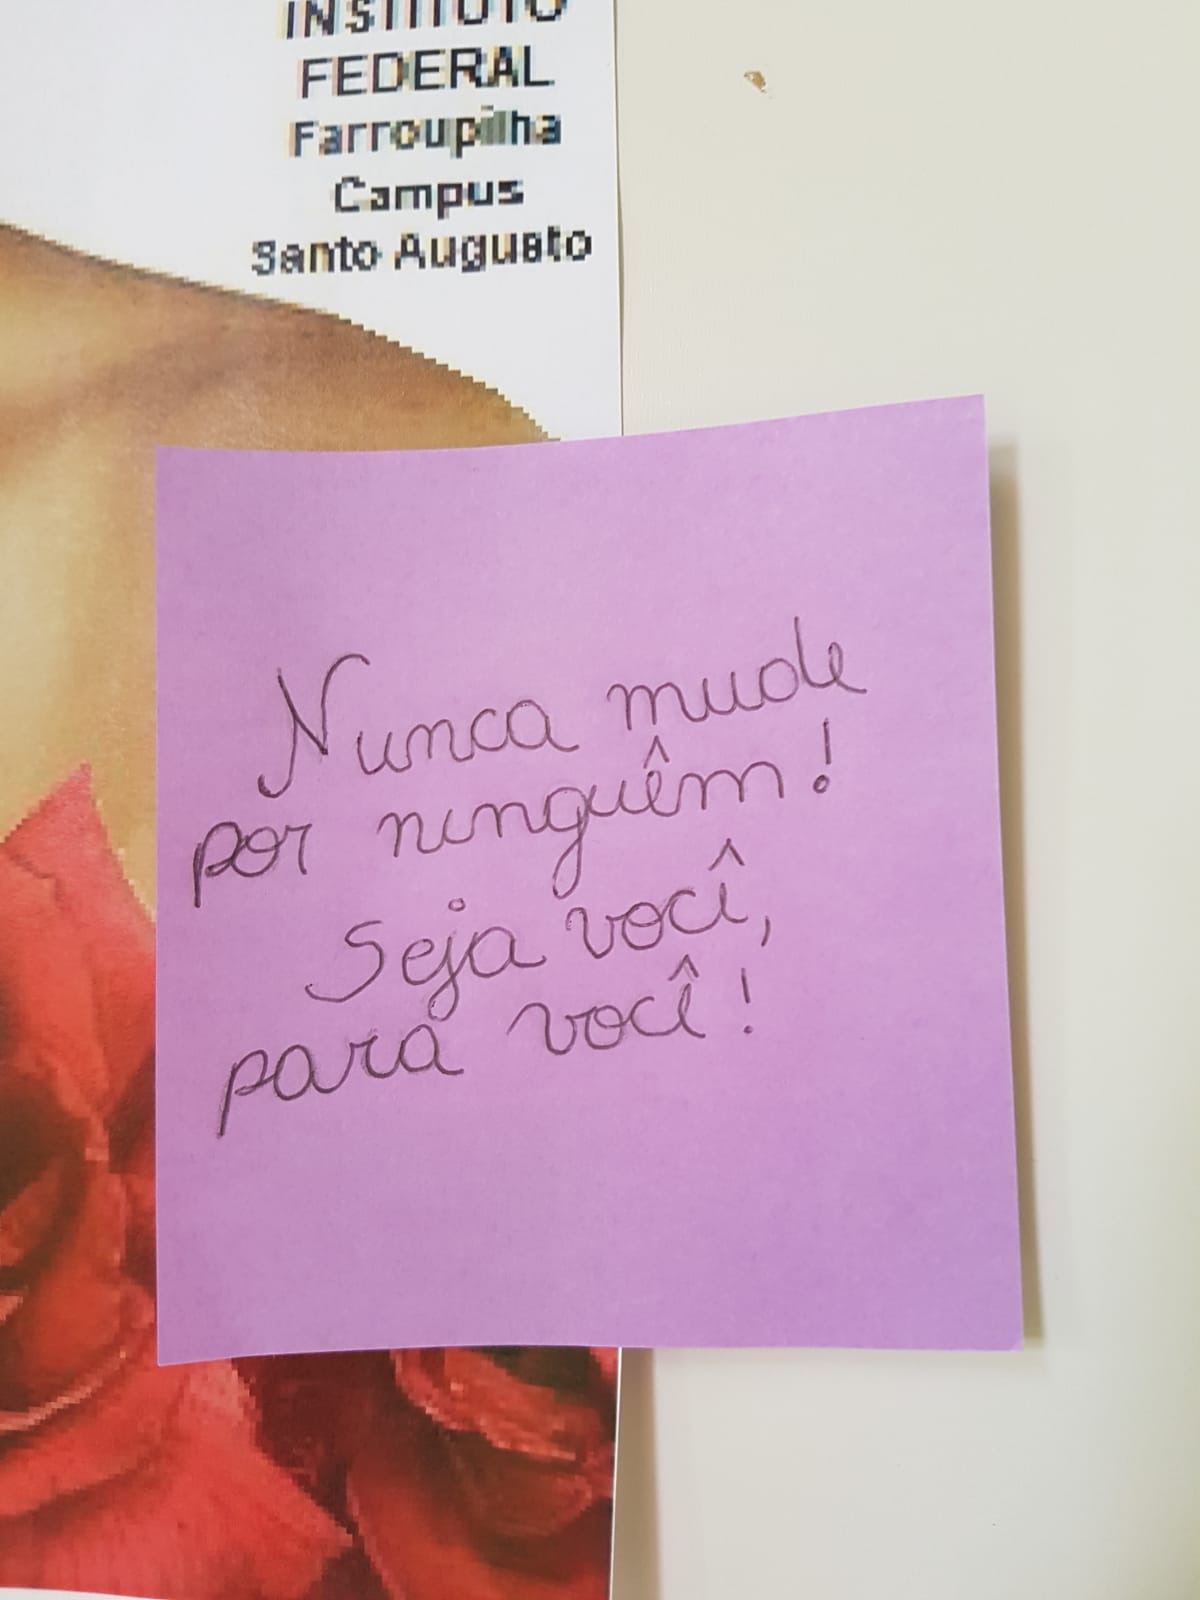 INSTITUTO
FEDERAL
Farroupilha
Campus
Santo Augusto
Nunca mude
por ninguêm!
Seja você,
para você!